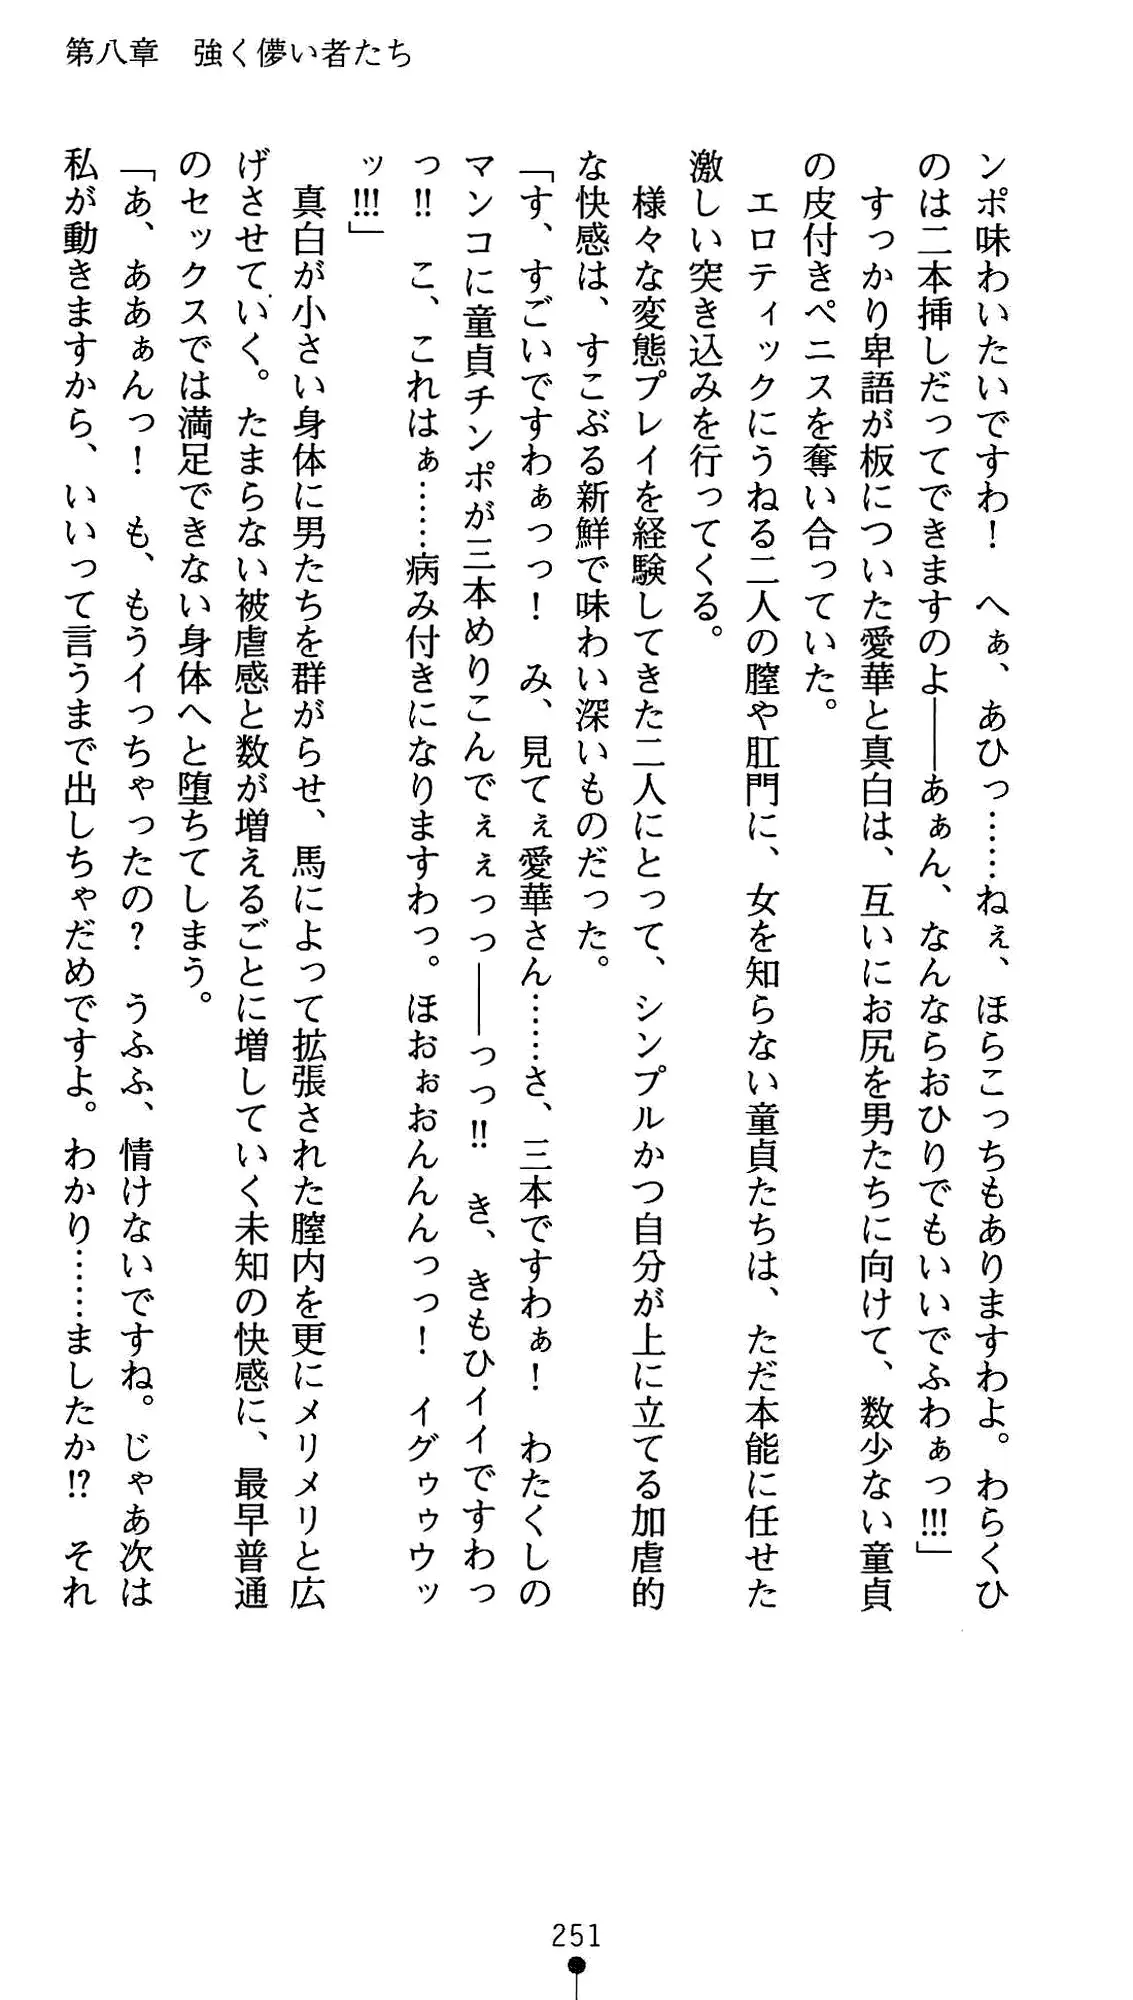 第八章　強く儚い者たち
ンポ味わいたいですわ！　へぁ、あひっ……ねぇ、ほらこっちもありますわよ。わらくひ
のは二本挿しだってできますのよ――あぁん、なんならおひりでもいいでふわぁっ!!!」
　すっかり卑語が板についた愛華と真白は、互いにお尻を男たちに向けて、数少ない童貞
の皮付きペニスを奪い合っていた。
　エロティックにうねる二人の膣や肛門に、女を知らない童貞たちは、ただ本能に任せた
激しい突き込みを行ってくる。
　様々な変態プレイを経験してきた二人にとって、シンプルかつ自分が上に立てる加虐的
な快感は、すこぶる新鮮で味わい深いものだった。
「す、すごいですわぁっっ！　み、見てぇ愛華さん……さ、三本ですわぁ！　わたくしの
マンコに童貞チンポが三本めりこんでぇぇっっ――っっ!!　き、きもひイイですわっ
っ!!　こ、これはぁ……病み付きになりますわっ。ほおぉおんんんっっ！　イグゥゥウッ
ッ!!!」
　真白が小さい身体に男たちを群がらせ、馬によって拡張された膣内を更にメリメリと広
げさせていく。たまらない被虐感と数が増えるごとに増していく未知の快感に、最早普通
のセックスでは満足できない身体へと堕ちてしまう。
「あ、ああぁんっ！　も、もうイっちゃったの？　うふふ、情けないですね。じゃあ次は
私が動きますから、いいって言うまで出しちゃだめですよ。わかり……ましたか!?　それ
251